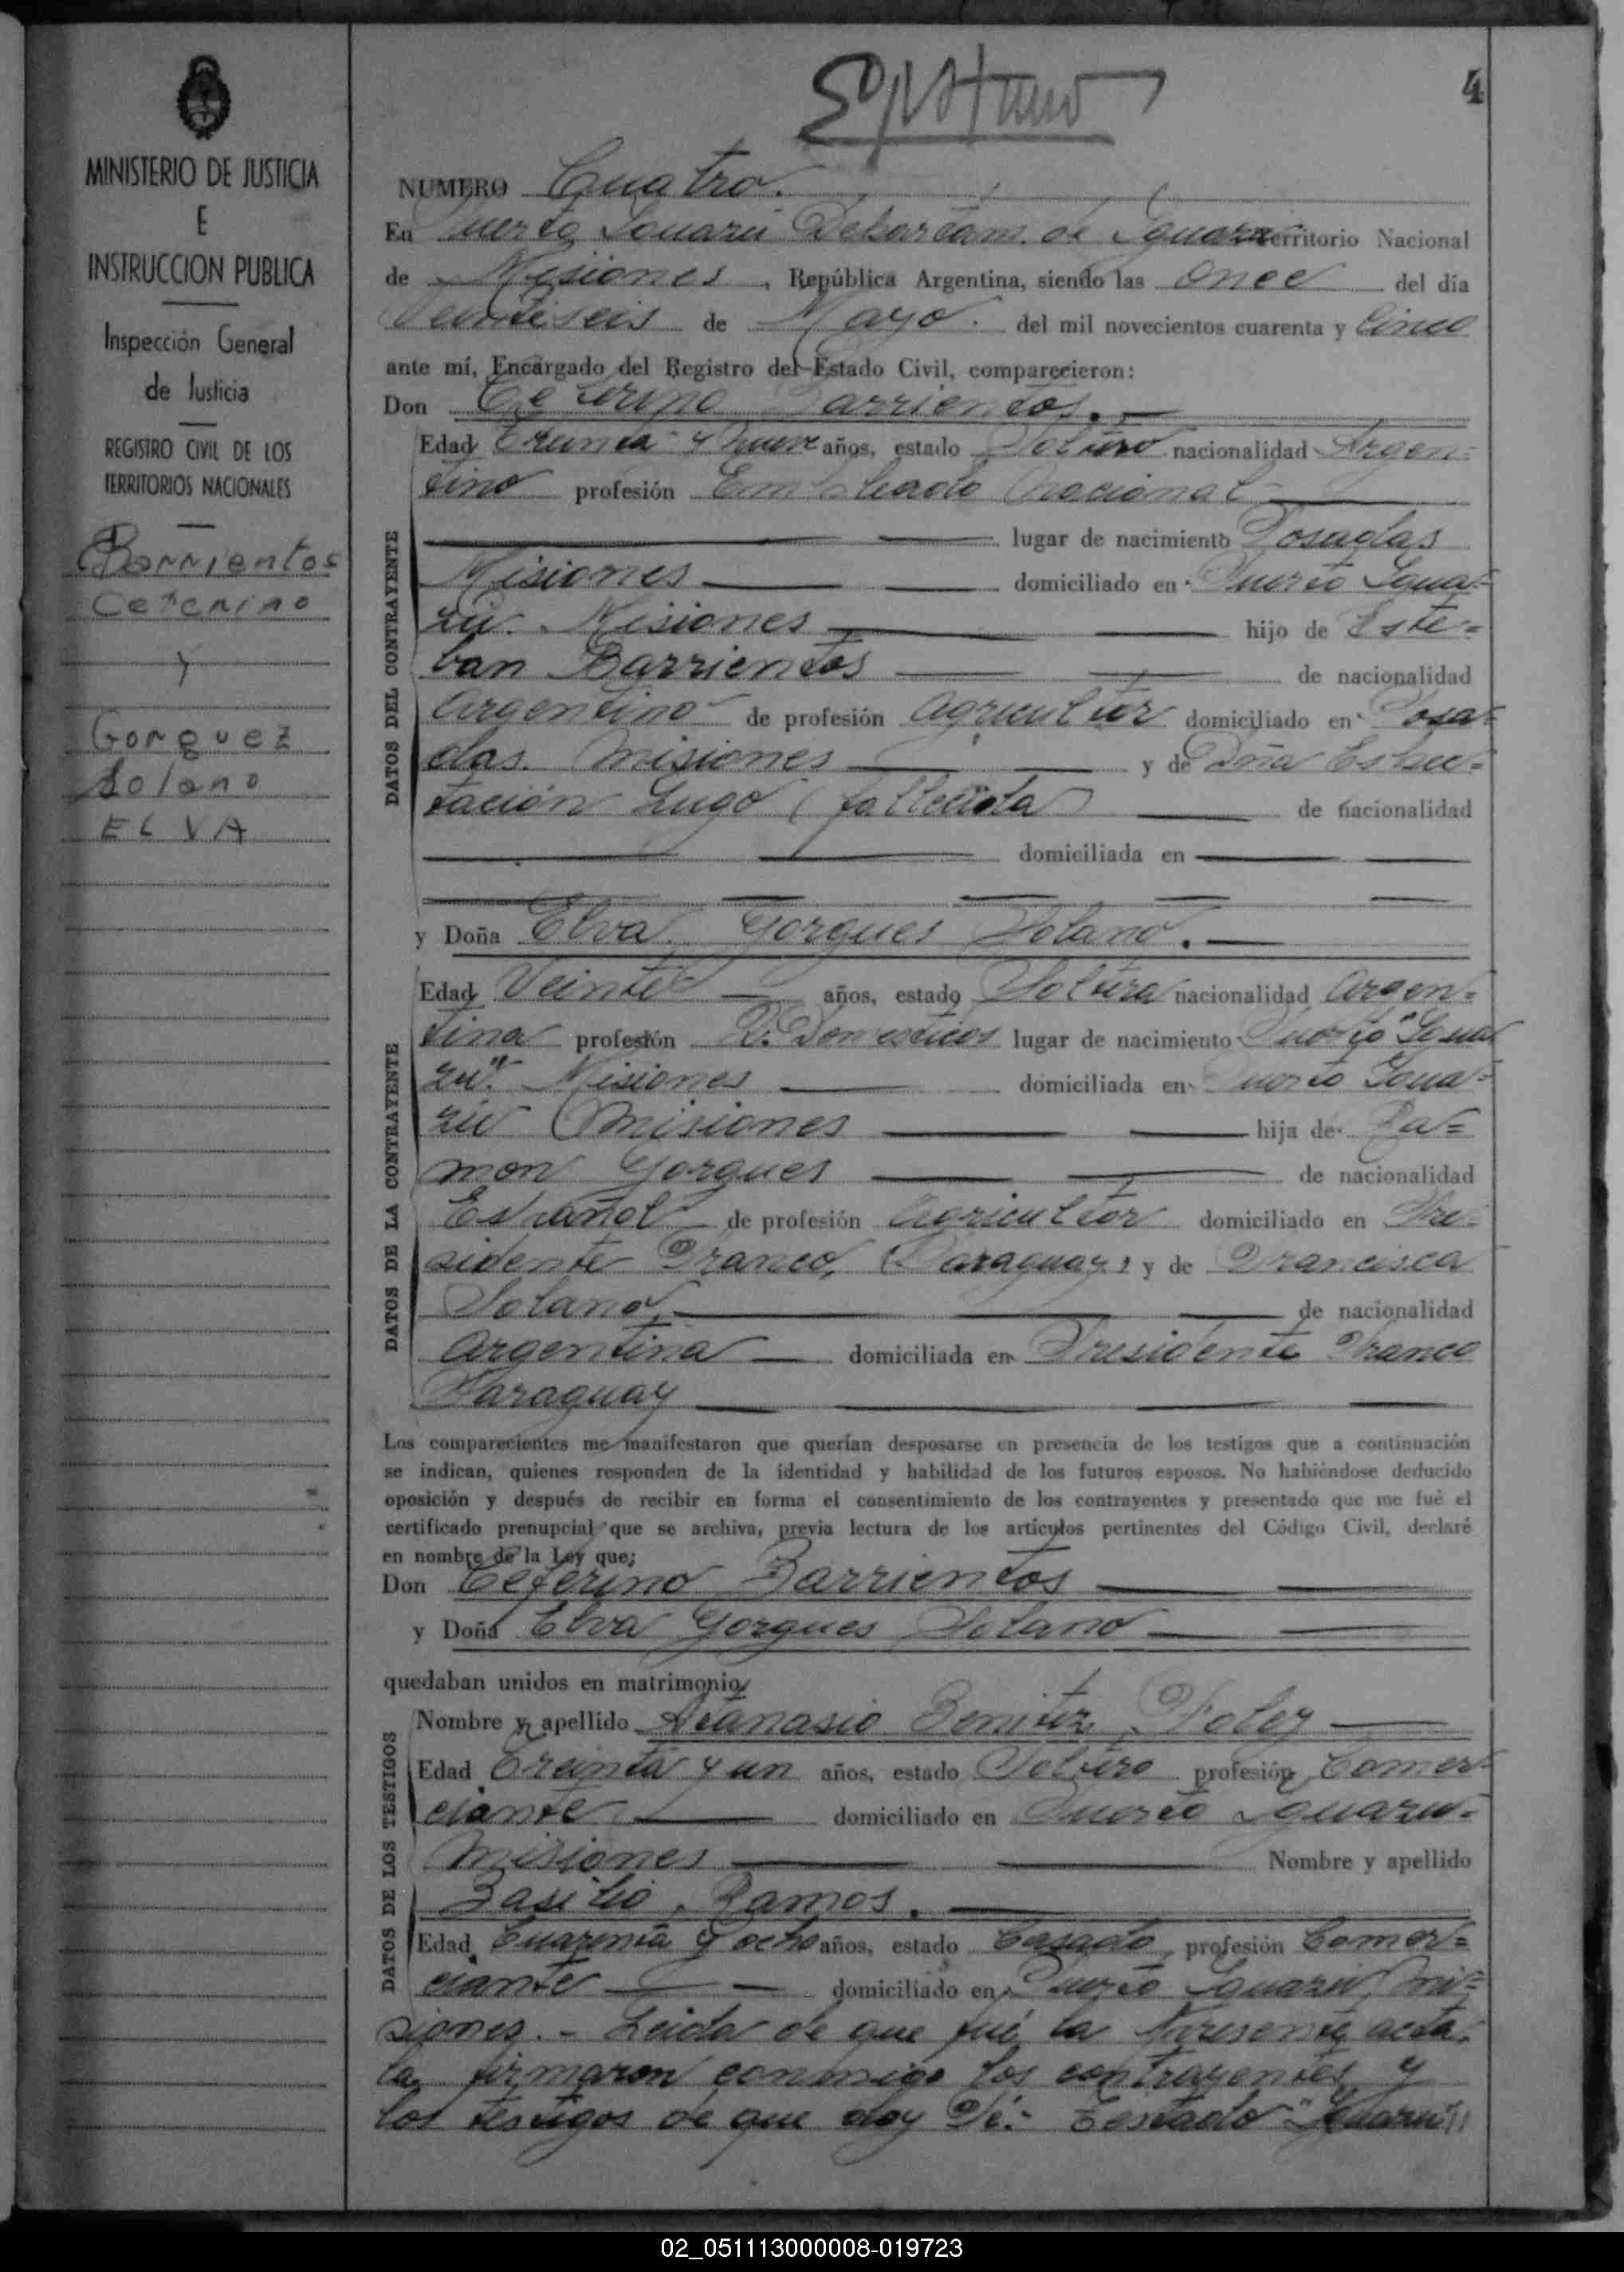 4
MINISTERIO DE JUSTICIA
E
INSTRUCCION PUBLICA
Inspección General
de Justicia
REGISTRO CIVIL DE LOS
TERRITORIOS NACIONALES
Barrientos
Ceferino
y
Gorguez
Solano
ELVA
NUMERO Cuatro.
En Puerto Iguazú Departam. de Iguazú Territorio Nacional
de Misiones, República Argentina, siendo las once del día
Veintiseis de Mayo. del mil novecientos cuarenta y Cinco
ante mí, Encargado del Registro del Estado Civil, comparecieron:
Don Ceferino Barrientos.
DATOS DEL CONTRAYENTE
Edad Treinta y nueve años, estado Soltero nacionalidad Argen=
tino profesión Empleado Nacional
lugar de nacimiento Posadas
Misiones domiciliado en Puerto Igua=
zú. Misiones hijo de Este=
ban Barrientos de nacionalidad
Argentino de profesión Agricultor domiciliado en Posa=
das. Misiones y de Dña
tación Lugo (fallecida) de nacionalidad
domiciliada en
y Doña Elva Gorgues Solano.
DATOS DE LA CONTRAYENTE
Edad Veinte años, estado Soltera nacionalidad Argen=
tina profesión Q. Domesticos lugar de nacimiento Puerto "Igua
zú". Misiones domiciliada en Puerto Igua=
zú Misiones hija de Ra=
mon Gorgues de nacionalidad
Español de profesión Agricultor domiciliado en Pre=
sidente Franco, (Paraguay) y de Francisca
Solano, de nacionalidad
Argentina domiciliada en Presidente Franco
Paraguay
Los comparecientes me manifestaron que querían desposarse en presencia de los testigos que a continuación
se indican, quienes responden de la identidad y habilidad de los futuros esposos. No habiéndose deducido
oposición y después de recibir en forma el consentimiento de los contrayentes y presentado que me fué el
certificado prenupcial que se archiva, previa lectura de los artículos pertinentes del Código Civil, declaré
en nombre de la Ley que;
Don Ceferino Barrientos
y Doña Elva Gorgues Solano
quedaban unidos en matrimonio
DATOS DE LOS TESTIGOS
Nombre y apellido Atanasio Benitez
Edad Treinta y un años, estado Soltero profesión Comer=
ciante domiciliado en Puerto Iguazú.
Misiones Nombre y apellido
Basilio Ramos.
Edad Cuarenta y ocho años, estado Casado, profesión Comer=
ciante domiciliado en Puerto Iguazú, Mi=
siones. - Leida de que fué la presente acta.
la firmaron conmigo los contrayentes y
los testigos de que doy Fé.- Testado "Iguazú"
02_051113000008-019723